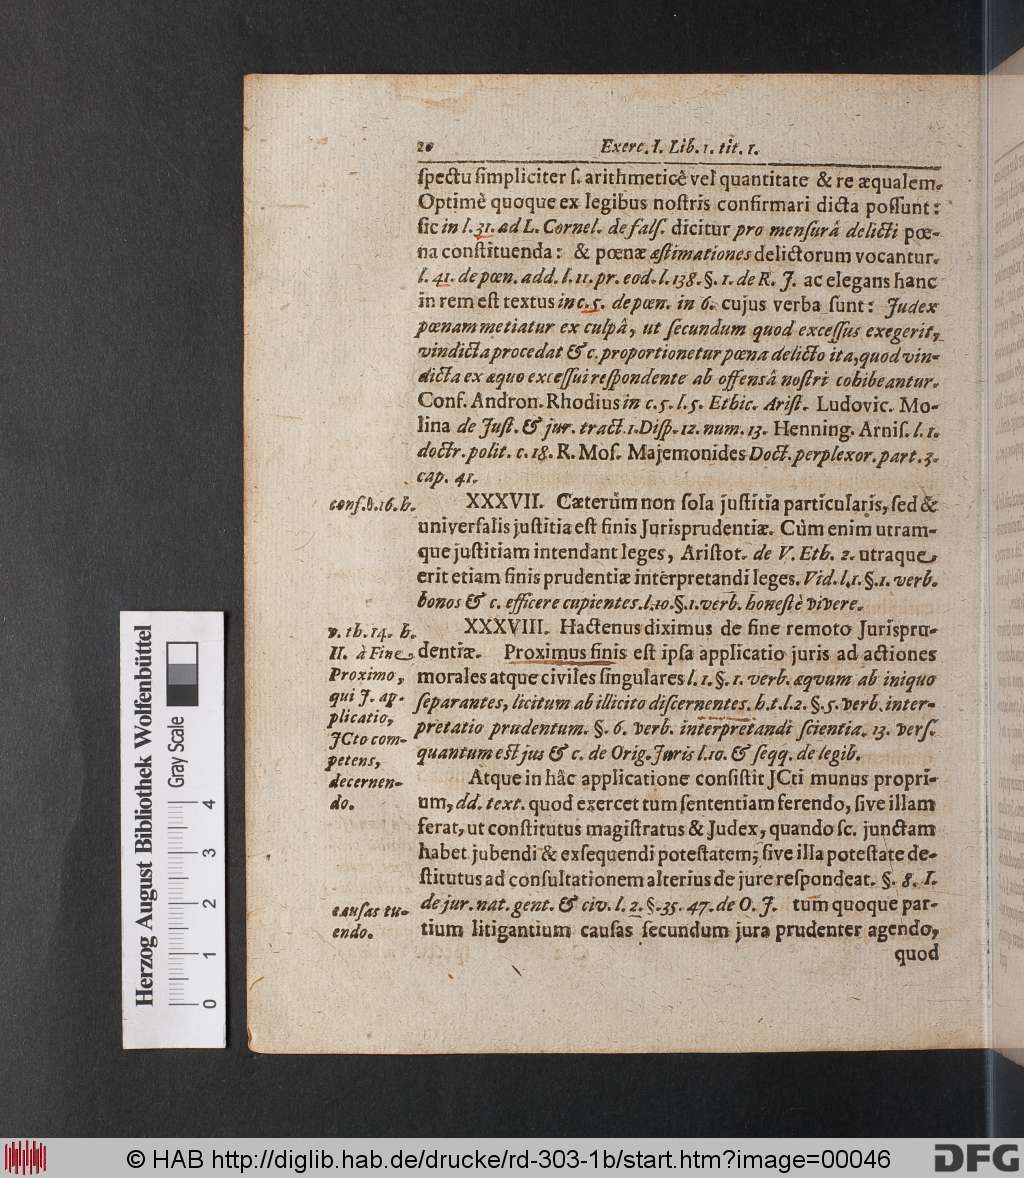 20 Exerc. I. Lib. 1. tit. 1.
spectu simpliciter s. arithmeticè vel quantitate & re æqualem.
Optimè quoque ex legibus nostris confirmari dicta possunt:
sic in l. 31. ad L. Cornel. de fals. dicitur pro mensurâ delicti pœ-
na constituenda: & pœnæ æstimationes delictorum vocantur.
l. 41. de pœn. add. l. 11. pr. eod. l. 138. §. 1. de R. J. ac elegans hanc
in rem est textus in c. 5. de pœn. in 6. cujus verba sunt: Judex
pœnam metiatur ex culpâ, ut secundum quod excessus exegerit,
vindicta procedat & c. proportionetur pœna delicto ita, quod vin-
dicta ex æquo excessui respondente ab offensâ nostri cohibeantur.
Conf. Andron. Rhodius in c. 5. l. 5. Ethic. Arist. Ludovic. Mo-
lina de Just. & jur. tract. 1. Disp. 12. num. 13. Henning. Arnis. l. 1.
doctr. polit. c. 18. R. Mos. Majemonides Doct. perplexor. part. 3.
cap. 41.
conf. θ. 16. h.
XXXVII. Cæterùm non sola justitia particularis, sed &
universalis justitia est finis Jurisprudentiæ. Cùm enim utram-
que justitiam intendant leges, Aristot. de V. Eth. 2. utraque
erit etiam finis prudentiæ interpretandi leges. Vid. l. 1. §. 1. verb.
bonos & c. efficere cupientes. l. 10. §. 1. verb. honestè vivere.
v. th. 14. h.
II. à Fine
Proximo,
qui J. ap-
plicatio,
JCto com-
petens,
decernen-
do.
XXXVIII. Hactenus diximus de fine remoto Jurispru-
dentiæ. Proximus finis est ipsa applicatio juris ad actiones
morales atque civiles singulares l. 1. §. 1. verb. æqvum ab iniquo
separantes, licitum ab illicito discernentes. h. t. l. 2. §. 5. verb. inter-
pretatio prudentum. §. 6. verb. interpretandi scientia. 13. vers.
quantum est jus & c. de Orig. Juris l. 10. & seqq. de legib.
Atque in hâc applicatione consistit JCti munus propri-
um, dd. text. quod exercet tum sententiam ferendo, sive illam
ferat, ut constitutus magistratus & Judex, quando sc. junctam
habet jubendi & exsequendi potestatem; sive illa potestate de-
stitutus ad consultationem alterius de jure respondeat. §. 8. I.
de jur. nat. gent. & civ. l. 2. §. 35. 47. de O. J. tum quoque par-
tium litigantium causas secundum jura prudenter agendo,
causas tu-
endo.
quod
Herzog August Bibliothek Wolfenbüttel
Gray Scale
0 1 2 3 4
© HAB http://diglib.hab.de/drucke/rd-303-1b/start.htm?image=00046
DFG